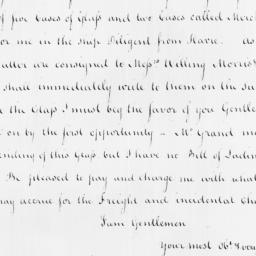 of five Cases of Glass and two Cases called Merch
for me in the ship Diligent from Havre. as
atter are consigned to Messrs Willing Morris
shall immediately write to them on the Su
the Glass I must beg the favor of you Gentle
on by the first opportunity - Mr Grand me
ending of this Glass but I have no Bill of Ladin
Be pleased to pay and charge me with what
may accrue for the Freight and incidental Cha
I am Gentlemen
Your most Obt